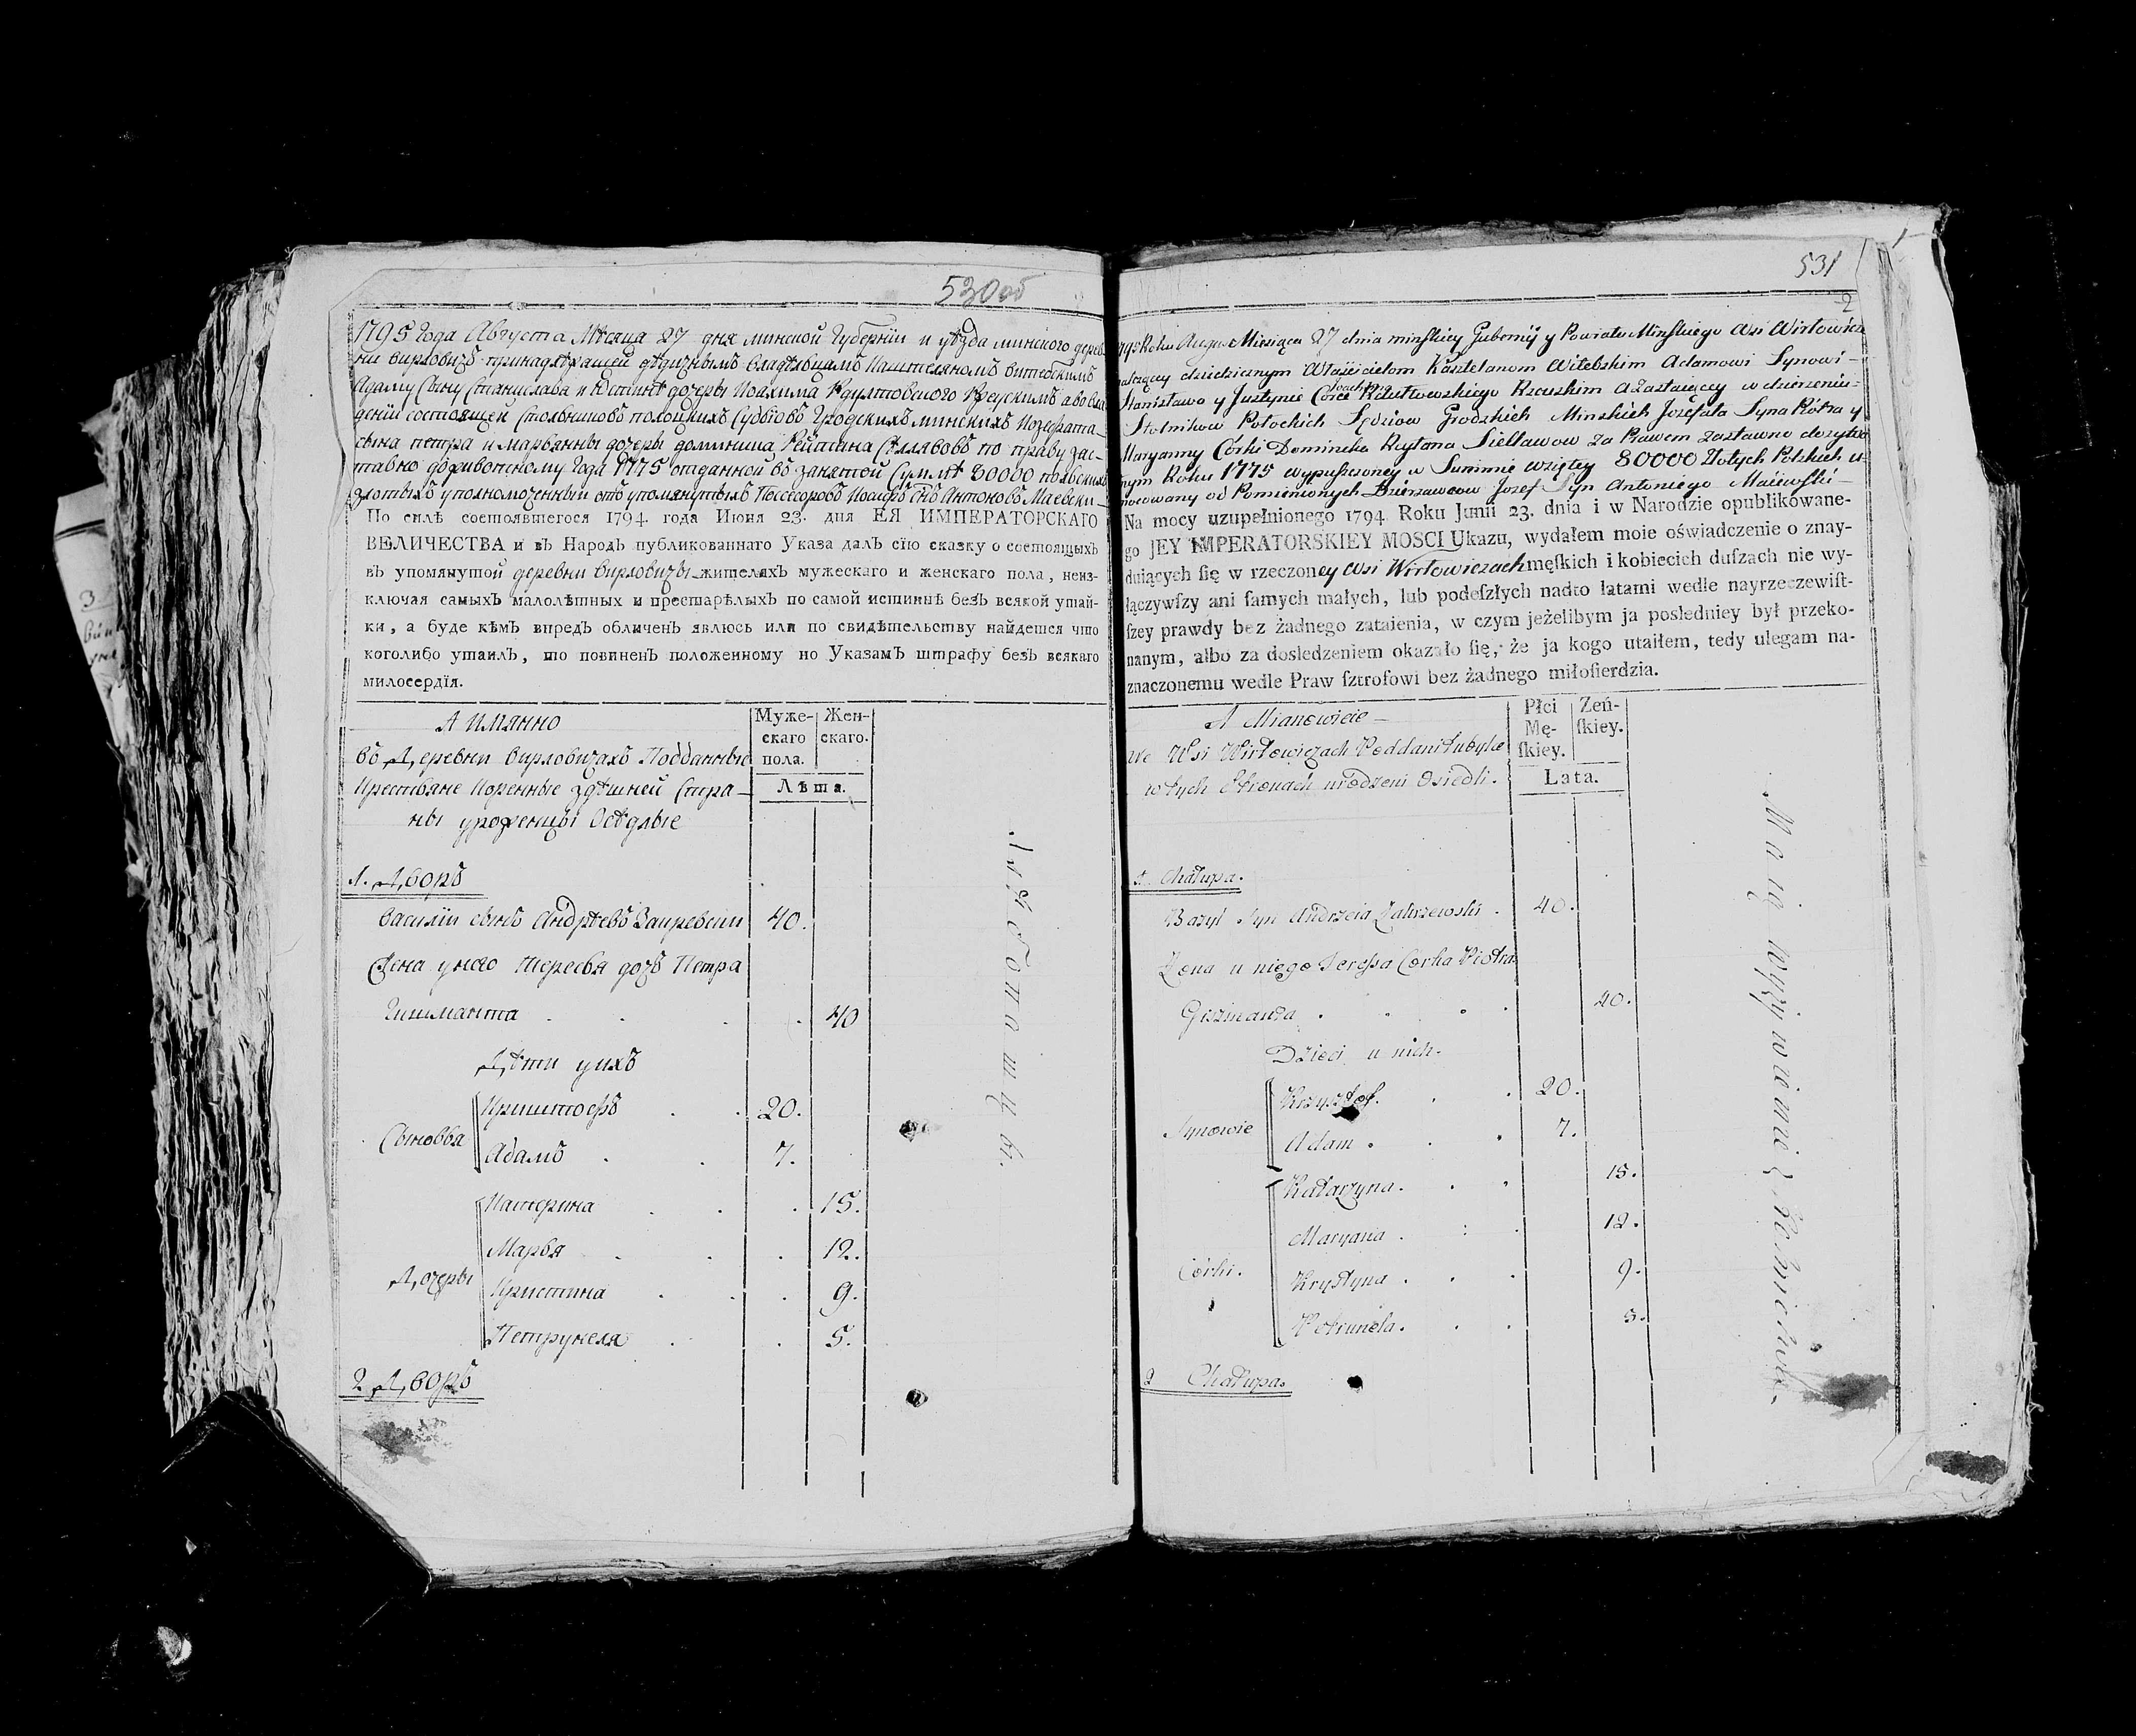 530об
1795 Года Августа Мѣсяца 27 дня минской Губернїи и уѣзда минского дерев-
ни вирловичъ принадлежащей дѣдичнымъ владѣльцамъ Каштеляномъ витебскимъ
Адаму Сыну Станислава и Юстинѣ дочеры Иоахима
дѣнїи состоящей Стольниковъ полоцкихъ Судьовъ Гродскихъ минскихъ Иозефата
сына петра и марьянны дочеры доминика Рейтана Селявовъ по праву зас-
тавно доживотному Года 1775 отданной въ занятой Суммѣ 80000 польскихъ
злотыхъ уполномоченный отъ упомянутыхъ Посесоровъ Иосифъ Снъ Антоновъ Маевски
По силѣ состоявшегося 1794. года Июня 23. дня ЕЯ ИМПЕРАТОРСКАГО
ВЕЛИЧЕСТВА и въ Народъ публикованнаго Указа далъ сїю сказку о состоящыхъ
въ упомянутой деревни вирловичы жителяхъ мужескаго и женскаго пола, неиз-
ключая самыхъ малолѣтныхъ и престарѣлыхъ по самой истиннѣ безъ всякой утай-
ки, а буде кѣмъ впредъ обличенъ явлюсь или по свидѣтельству найдется что
коголибо утаилъ, то повиненъ положенному по Указамъ штрафу безъ всякаго
милосердїя.
А имянно
Муже-
скаго
пола.
Жен-
скаго.
Лѣта.
въ Деревни вирловичахъ Подданные
Крестьяне Коренные здѣшней Стра-
ны уроженцы Осѣдлые
1. Дворъ
Василїи сынъ Андрѣевъ Закревскїи 40.
Жена унего Тересья дочъ Петра
Гишманта 40
Дѣти унхъ
Сыновья
Криштофъ 20.
Адамъ 7.
Дочеры
Катерина 15.
Марья 12.
Кристина 9.
Петрунеля 5.
2 Дворъ
531
2
1795 Roku August Miesiąca 27 dnia minskiey Gubernij y Powiatu Minskiego Wsi Wirłowicz
należącey dziedzicznym Właścicielom Kasztelanom Witebskim Adamowi Synowi
Stanisława y Justynie Corce Joachima Rzeuskim a zostaiącey w dzierżeniu
Stolnikow Połockich Sędziow Grodzkich Minskich Jozefata Syna Piotra y
Maryanny Corki Dominika Reytana Siellawow za Prawem zastawno dożywot
nym Roku 1775 wypuszczoney w Summie wziętey 80000 Złotych Polskich u-
mocowany od Pomienionych Dzierżawcow Jozef Syn Antoniego Maiewski
Na mocy uzupełnionego 1794 Roku Junii 23. dnia i w Narodzie opublikowane-
go JEY IMPERATORSKIEY MOSCI Ukazu, wydałem moie oświadczenie o znay-
duiących ſię w rzeczoney Wsi Wirłowiczach męſkich i kobiecich duſzach nie wy-
łączywſzy ani ſamych małych, lub podeſzłych nadto łatami wedle nayrzeczewiſt-
ſzey prawdy bez żadnego zataienia, w czym jeżelibym ja posledniey był przeko-
nanym, albo za dosledzeniem okazało ſię, że ja kogo utaiłem, tedy ulegam na-
znaczonemu wedle Praw ſztrofowi bez żadnego miłoſierdzia.
A Mianowicie
Płci
Mę-
ſkiey.
Zeń-
ſkiey.
Lata.
We Wsi Wirłowiczach Poddani tubyłce
w tych Stronach urodzeni Osiedli.
1. Chałupa.
Bazyl Syn Andrzeia Zakrzewski 40.
Zona u niego Teressa Corka Piotra
Giszmanta 40.
Dzieci u nich.
Synowie
Krzysztof. 20.
Adam 7.
Corki.
Katarzyna. 15.
Maryana 12.
Krystyna 9.
Petrunela. 5.
2 Chałupa.